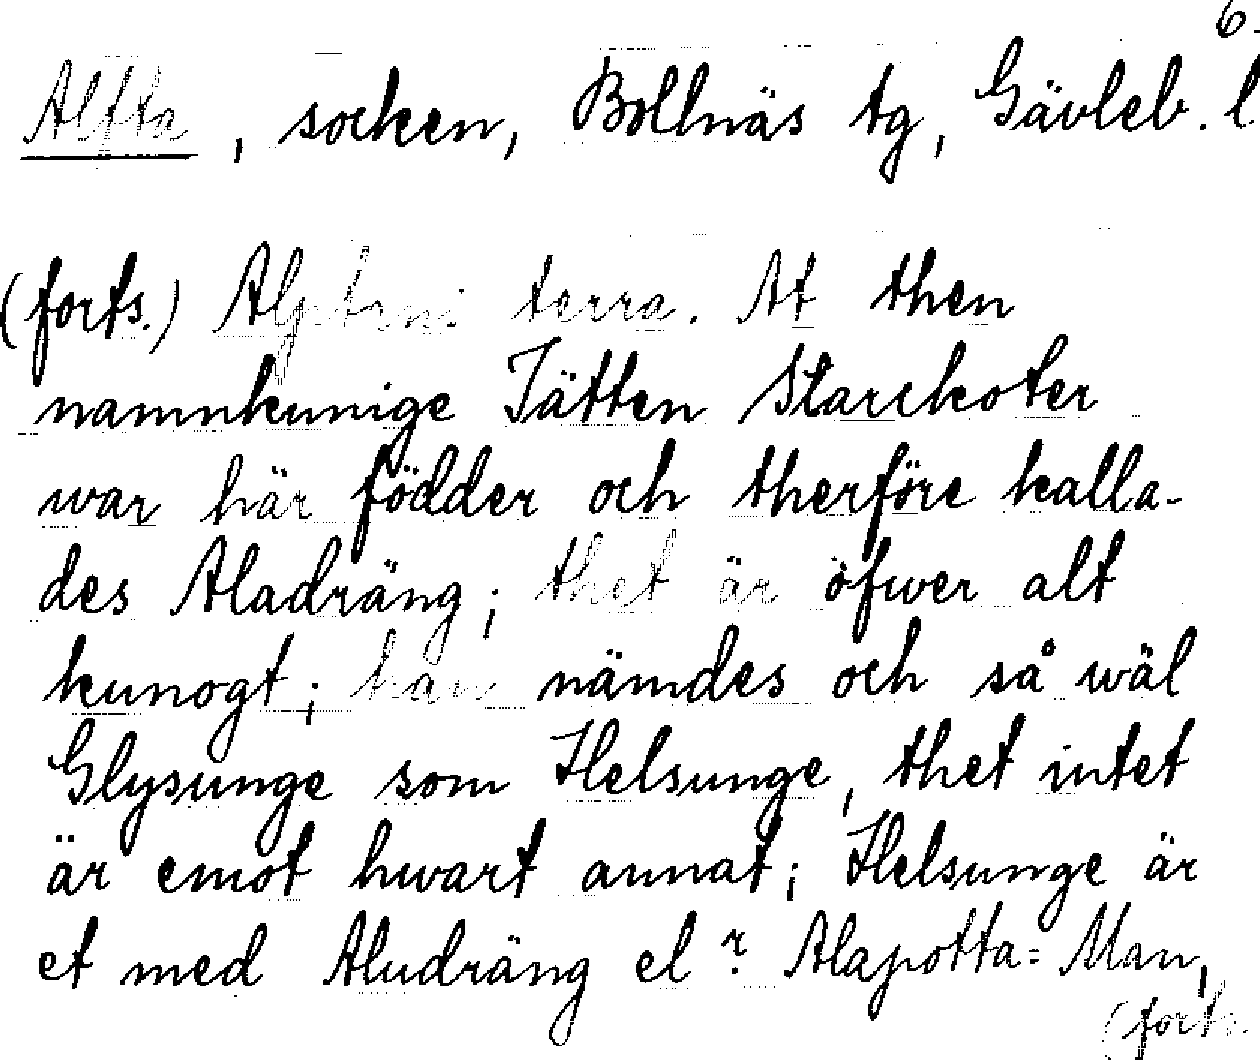 6.
Alfta, socken, Bollnäs tg, Gävleb. l
(forts.) terra. At then
namnkunige Jätten Starckoter
war här födder och therföre kalla-
des Aladräng; thet är öfwer alt
kunogt; han nämdes och så wäl
Glysunge som Helsunge, thet intet
är emot hwart annat; Helsunge är
et med Aludräng el r. Alapotta= Man,
(forts.